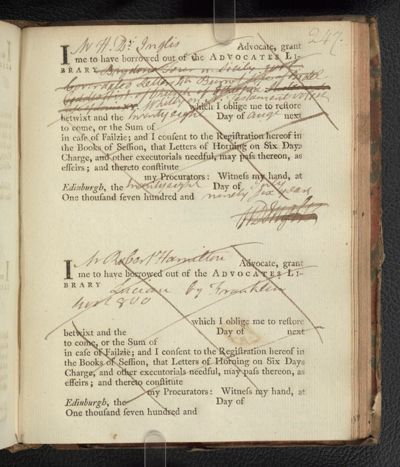 247.
I Mr H. D. Inglis Advocate, grant
me to have borrowed out of the ADVOCATES LI-
BRARY Brydone's Tour in Sicily
which I oblige me to restore
betwixt and the twenty eight Day of next
to come, or the Sum of
in case of Failzie; and I consent to the Registration hereof in
the Books of Session, that Letters of Horning on Six Days
Charge, and other executorials needful, may pass thereon, as
effeirs; and thereto constitute
my Procurators: Witness my hand, at
Edinburgh, the twenty eight Day of
One thousand seven hundred and ninety six years
I Mr Robert Hamilton Advocate, grant
me to have borrowed out of the ADVOCATES LI-
BRARY Lucian by Franklin
800
which I oblige me to restore
betwixt and the Day of next
to come, or the Sum of
in case of Failzie; and I consent to the Registration hereof in
the Books of Session, that Letters of Horning on Six Days
Charge, and other executorials needful, may pass thereon, as
effeirs; and thereto constitute
my Procurators: Witness my hand, at
Edinburgh, the Day of
One thousand seven hundred and